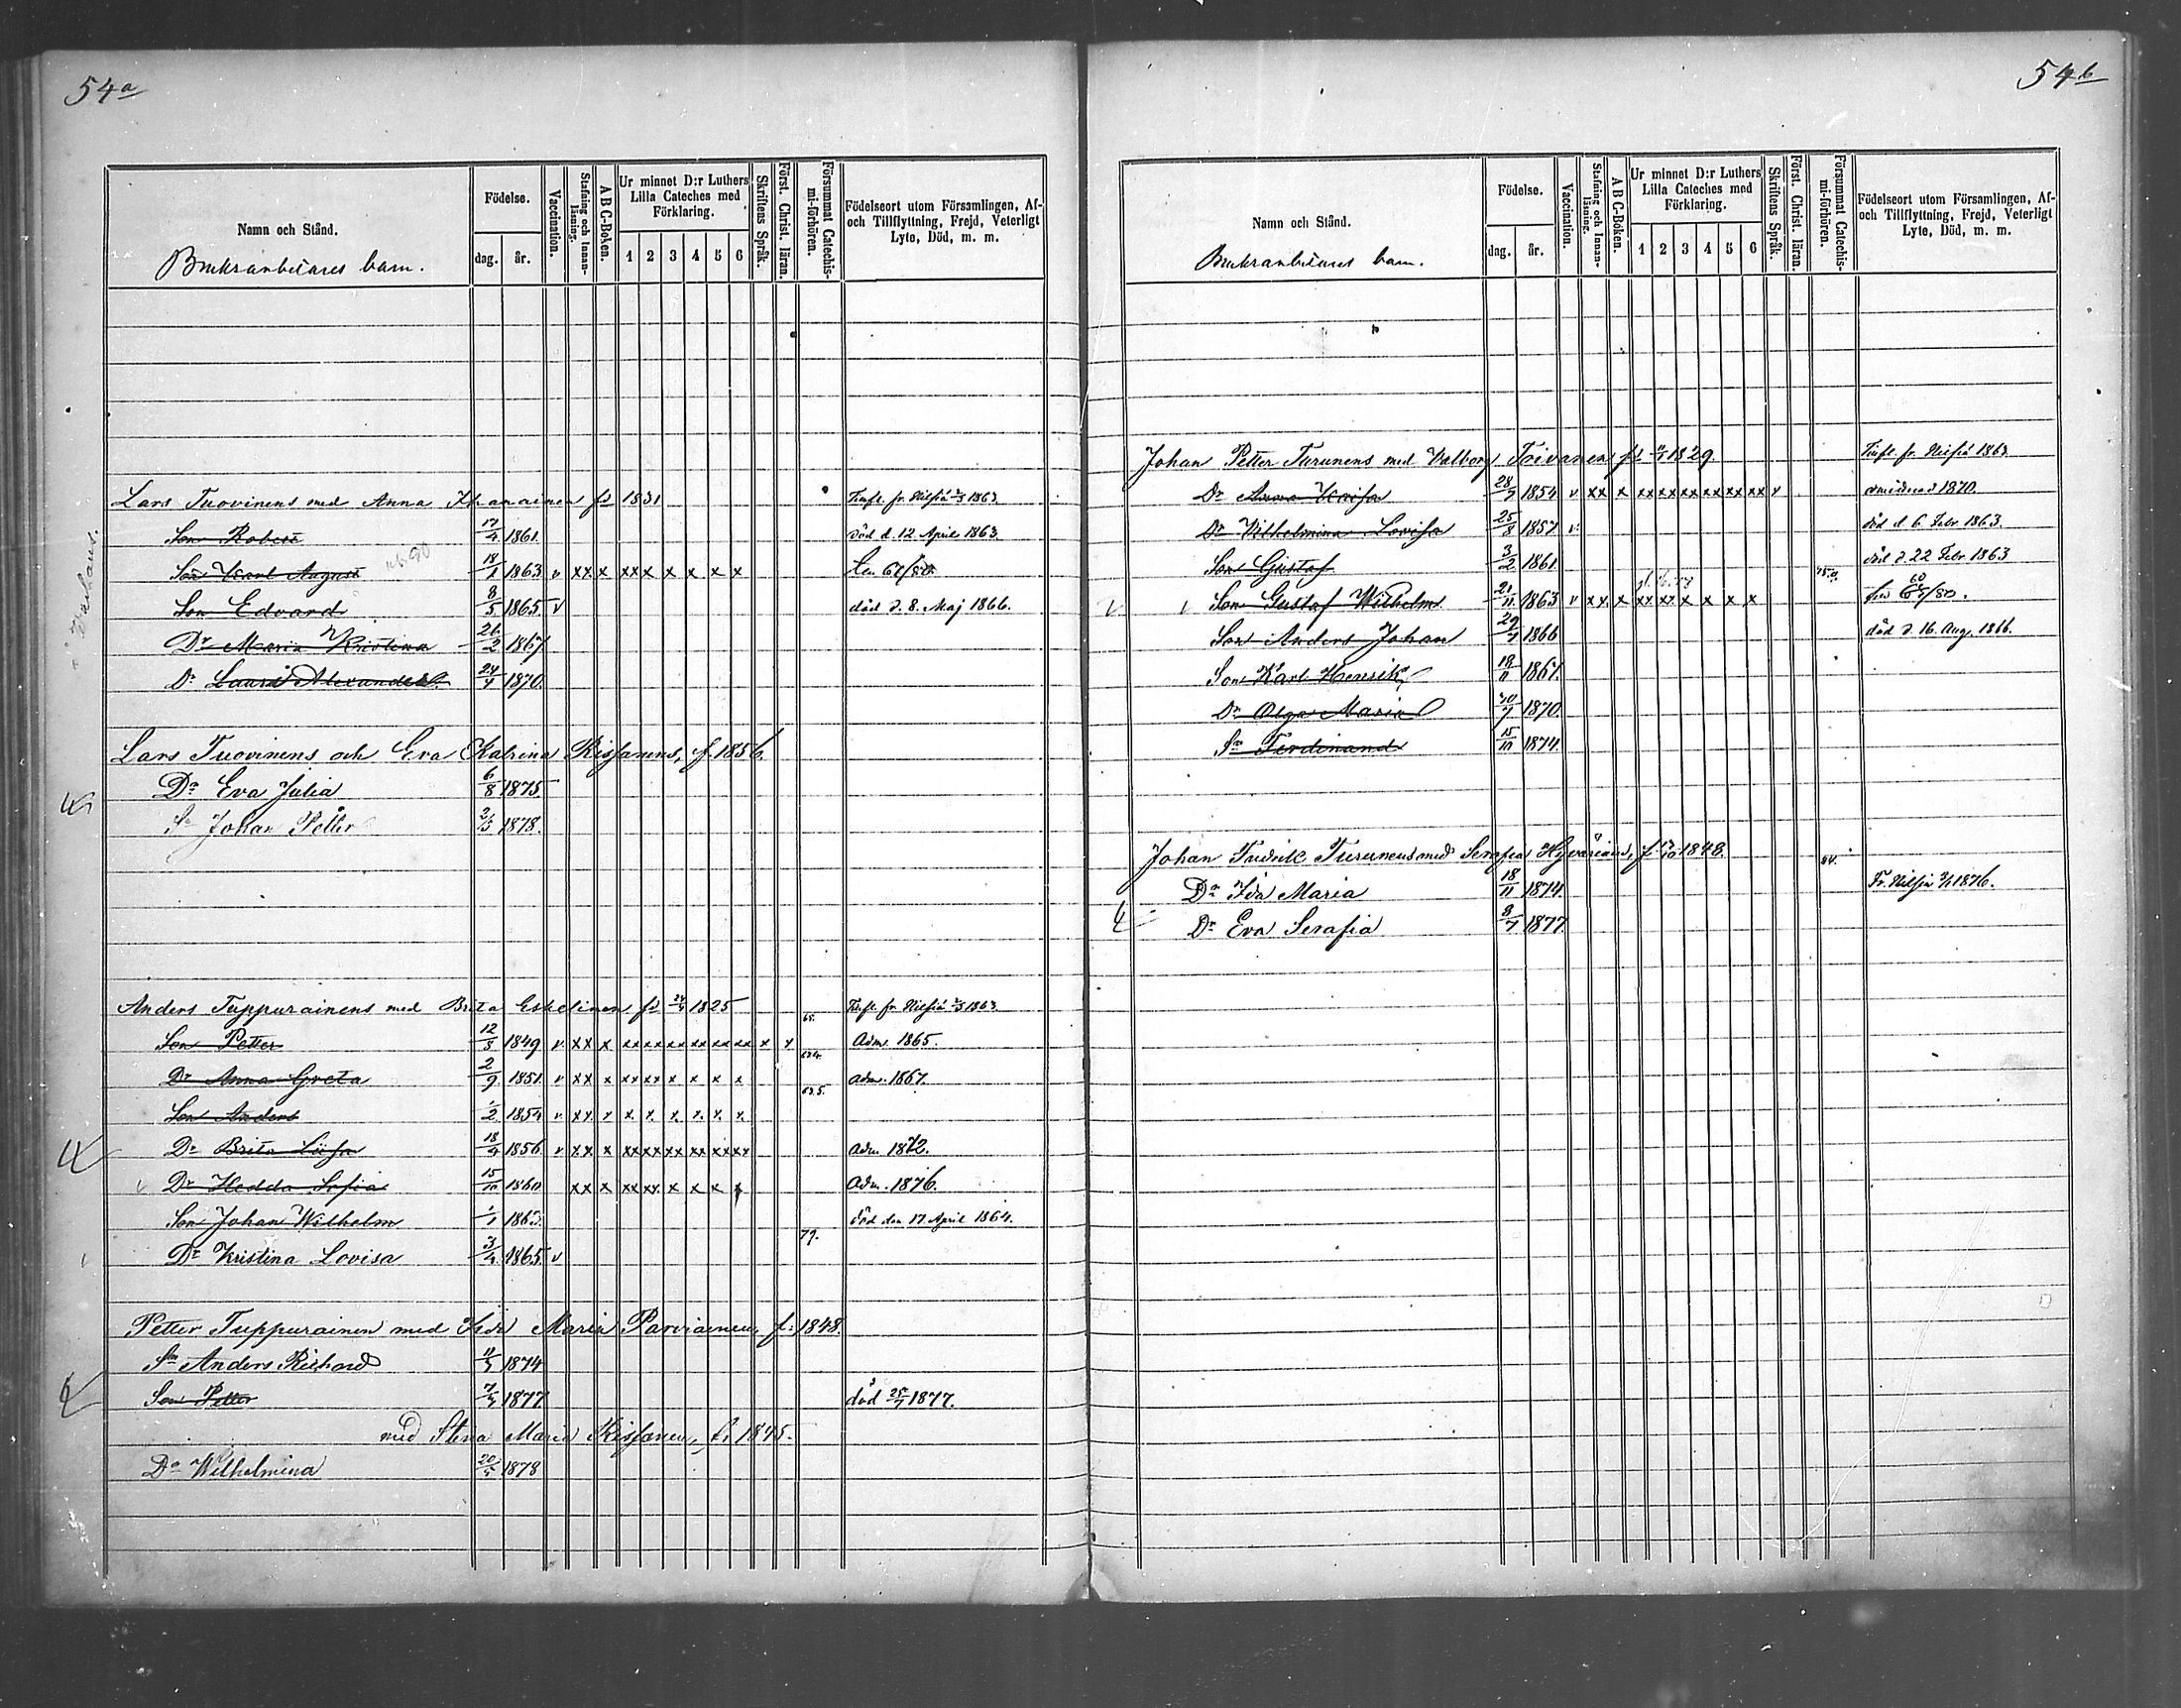 54a
Namn och Stånd.
Bruksarbetares barn.
Födelse.
dag.
år.
Vaccination.
Stafning och Innanläsning.
A B C-Boken.
Ur minnet D:r Luthers Lilla Cateches med Förklaring.
1 2 3 4 5 6
Skriftens Språk.
Först. Christ. läran.
Försummat Catechismi-förhören.
Födelseort utom Församlingen, Af- och Tillflyttning, Frejd, Veterligt Lyte, Död, m. m.
Lars Tuovinens med Anna fd 1831 Inft. fr. Nilsiä 1863.
Son Robert 17/4 1861. död d. 12 April 1863.
Son Karl August 18/1 1863 v xx x xx x x x x x
Son Edvard 8/5 1865 v död d. 8. Maj 1866.
Dr Maria Kristina 26/2 1867
Dr Laura Alexandra 24/4 1870.
Lars Tuovinens och Eva Katrina Rissanens, f. 1856.
Dr Eva Julia 6/8 1875
Sn Johan Petter 1878.
Anders Tuppurainens med Brita Eskelinen fd 1825 Inft. fr. Nilsiä 1863.
65.
Son Petter 12/3 1849 v xx x xx xx xx xx xx xx x x Adm. 1865.
Dr Anna Greta 2/9 1851 v xx x xx xx x x x x adm. 1867.
Son Anders 1/2 1854 v xx x x x x x x x
Dr Brita Liisa 18/4 1856 v xx x xx xx xx xx xx xx Adm. 1872.
Dr Hedda Sofia 15/10 1860 xx x xx xx x x x x Adm. 1876.
Son Johan Wilhelm 1/1 1863 död den 17 April 1864.
79.
Dr Kristina Lovisa 3/4 1865 v
Petter Tuppurainen med Maria Parviainen, f. 1848.
Sn Anders Richard 11/3 1874
Son Petter 7/4 1877 död 25/7 1877.
med Stina Maria Rissanen, f. 1845.
Dr Wilhelmina 20/5 1878
54b
Namn och Stånd.
Bruksarbetares barn.
Födelse.
dag.
år.
Vaccination.
Stafning och Innanläsning.
A B C-Boken.
Ur minnet D:r Luthers Lilla Cateches med Förklaring.
1 2 3 4 5 6
Skriftens Språk.
Först. Christ. läran.
Försummat Catechismi-förhören.
Födelseort utom Församlingen, Af- och Tillflyttning, Frejd, Veterligt Lyte, Död, m. m.
Johan Petter Turunens med Valborg Toivanen fd 1829. Inft. fr. Nilsiä 1863
Dr Anna Kaisa 28/7 1854 v xx x xx xx xx xx xx xx v admitterad 1870.
Dr Wilhelmina Lovisa 25/8 1857 v död d 6. Febr 1863.
Son Gustaf 3/2 1861 död d 22 Febr 1863
Son Gustaf Wilhelm 21/11 1863 v xx x xx xx x x x x
Son Anders Johan 29/7 1866 död d. 16. Aug. 1866.
Son Karl Henrik 18/11 1867.
Dr Olga Maria 1870.
Sn Ferdinand 15/10 1874.
Johan Fredrik Turunens med Serafia Hyvärinen, f. 1848.
Dr Ida Maria 18/11 1874. Fr. Nilsiä 1876.
Dr Eva Serafia 8/7 1877